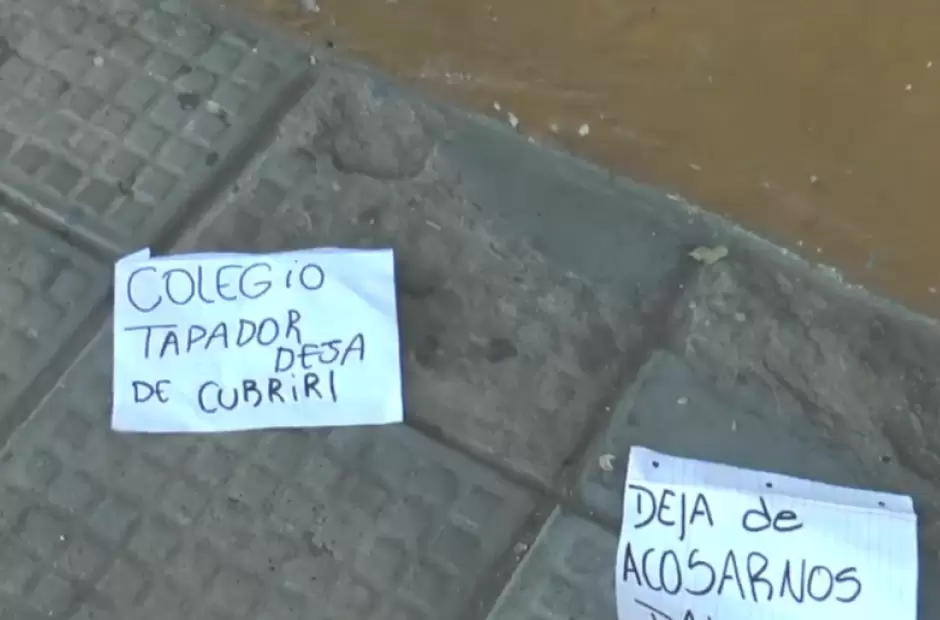 COLEGiO
TAPADOR
DEJA
DE CUBRiRI
DEJA de
ACOSARNOS